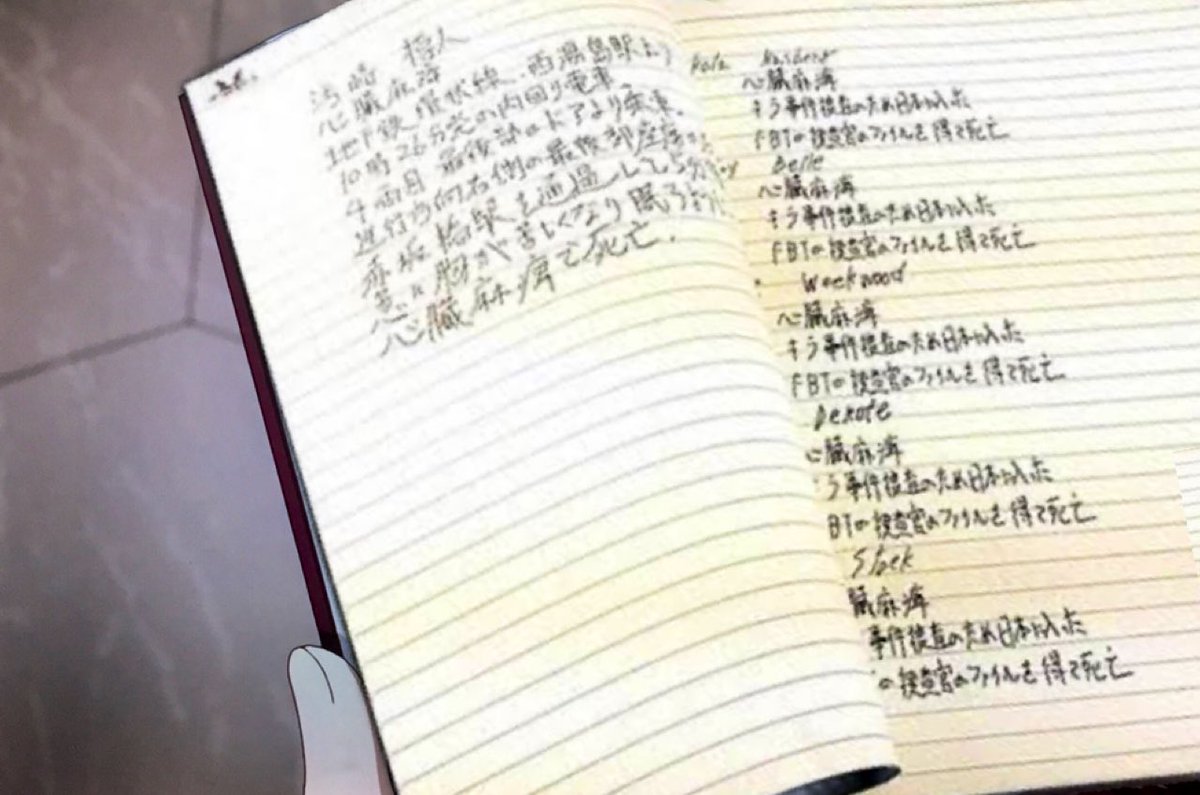 心臓麻痺
地下鉄 環状線、西湯島駅より
10時26分発の内回り電車
4両目 最後部のドアより乗車
進行方向右側の最後部座席
橋駅を通過して5分
胸が苦しくなり眠る
心臓麻痺で死亡.
心臓麻痺
キラ事件捜査のため日本に入った
FBIの捜査官のファイルを得て死亡
Belle
心臓麻痺
キラ事件捜査のため日本に入った
FBIの捜査官のファイルを得て死亡
Weekwood
心臓麻痺
キラ事件捜査のため日本に入った
FBIの捜査官のファイルを得て死亡
Denote
心臓麻痺
ラ事件捜査のため日本に入った
BIの捜査官のファイルを得て死亡
臓麻痺
事件捜査のため日本に入った
の捜査官のファイルを得て死亡